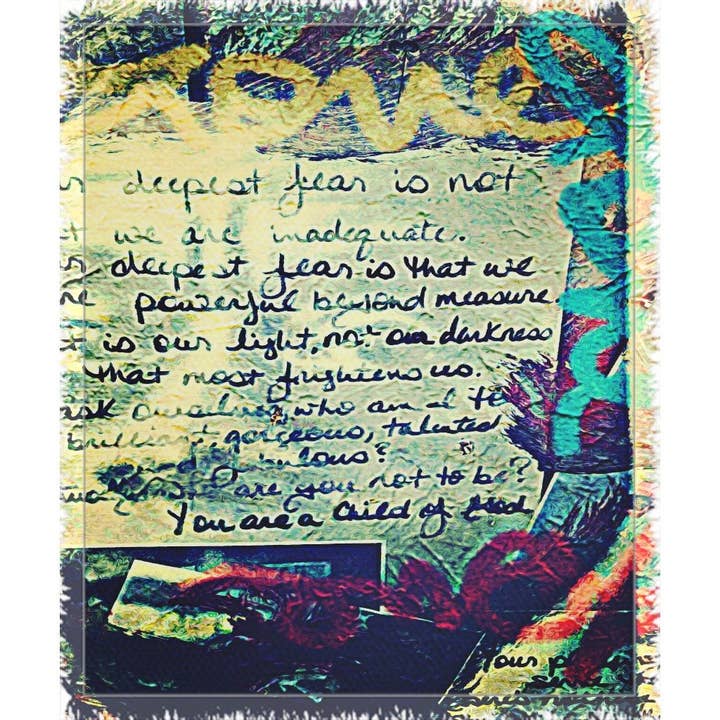 deepest fear is not
we are inadequate.
deepest fear is that we
powerful beyond measure.
t is our light, not our darkness
that most frightens us.
ask ourselves, who am I to
brilliant, gorgeous, talented
and fabulous?
are you not to be?
You are a Child of God
Your p